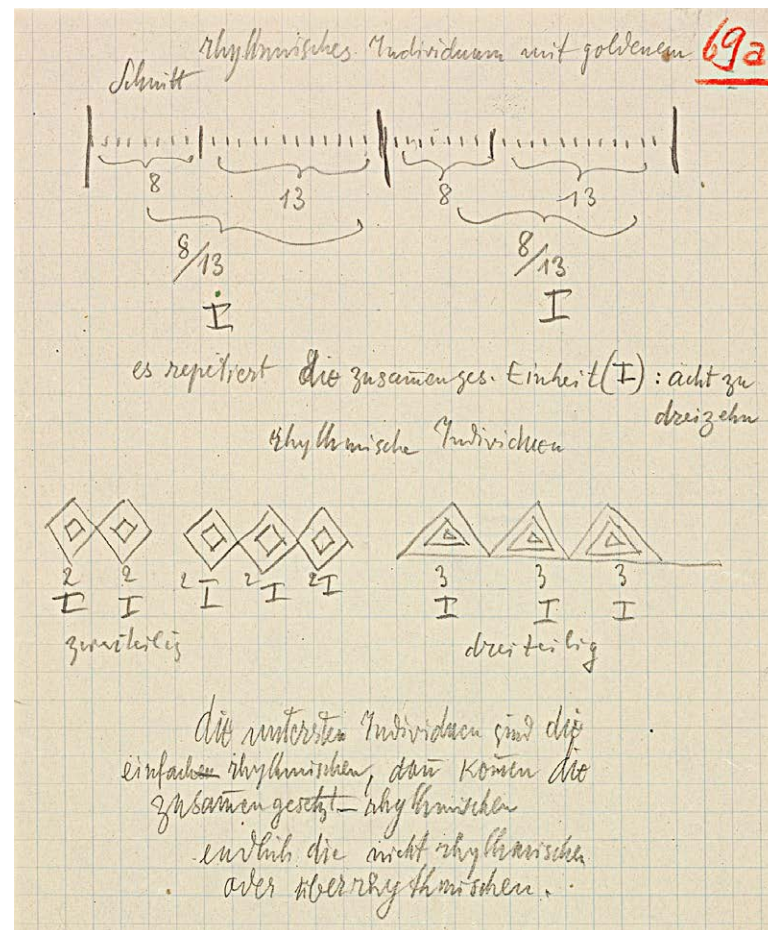 rhythmisches Individuum mit goldenem 69a
Schnitt
8 13 8 13
8/13 8/13
I I
es repetiert die zusam̄enges. Einheit (I) : acht zu
dreizehn
rhythmische Individuen
2 2 2 I 2 I 2 I 3 3 3
I I I I I
zweiteilig dreiteilig
die untersten Individuen sind die
einfach rhythmischen, dan̄ kom̄en die
zusam̄engesetzt-rhythmischen
endlich die nicht rhythmischen
oder überrhythmischen.